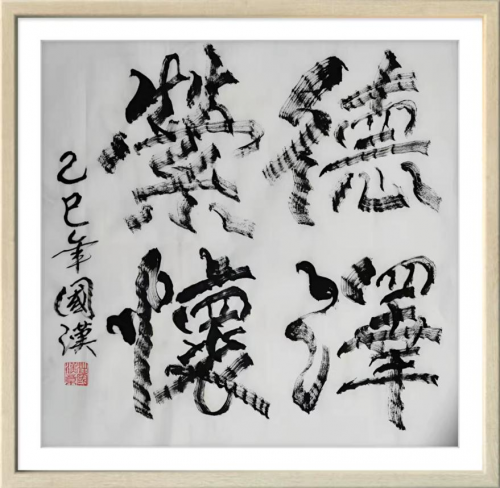 德澤
縈懷
乙巳年國漢